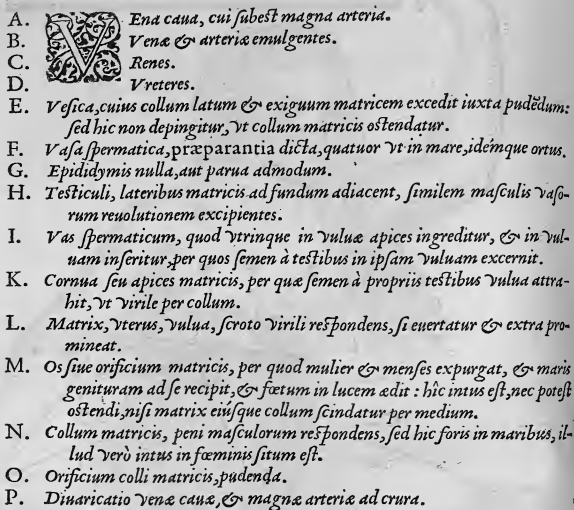 A. VEna caua, cui ſubeſt magna arteria.
B. Venæ & arteriæ emulgentes.
C. Renes.
D. Vreteres.
E. Veſica,cuius collum latum & exiguum matricem excedit iuxta pudēdum:
ſed hic non depingitur,vt collum matricis oſtendatur.
F. Vaſa ſpermatica,præparantia dicta,quatuor vt in mare,idémque ortus.
G. Epididymis nulla,aut parua admodum.
H. Teſticuli, lateribus matricis ad fundum adiacent, ſimilem maſculis vaſo-
rum reuolutionem excipientes.
I. Vas ſpermaticum, quod vtrinque in vuluæ apices ingreditur, & in vul-
uam inſeritur,per quos ſemen à teſtibus in ipſam vuluam excernit.
K. Cornua ſeu apices matricis, per quæ ſemen à propriis teſtibus vulua attra-
hit,vt virile per collum.
L. Matrix,vterus,vulua, ſcroto virili reſpondens,ſi euertatur & extra pro-
mineat.
M. Os ſiue orificium matricis, per quod mulier & menſes expurgat, & maris
genituram ad ſe recipit,& fœtum in lucem ædit : hîc intus eſt,nec poteſt
oſtendi,niſi matrix eiúſque collum ſcindatur per medium.
N. Collum matricis, peni maſculorum reſpondens,ſed hic foris in maribus, il-
lud verò intus in fœminis ſitum eſt.
O. Orificium colli matricis,pudenda.
P. Diuaricatio venæ cauæ,& magnæ arteriæ ad crura.